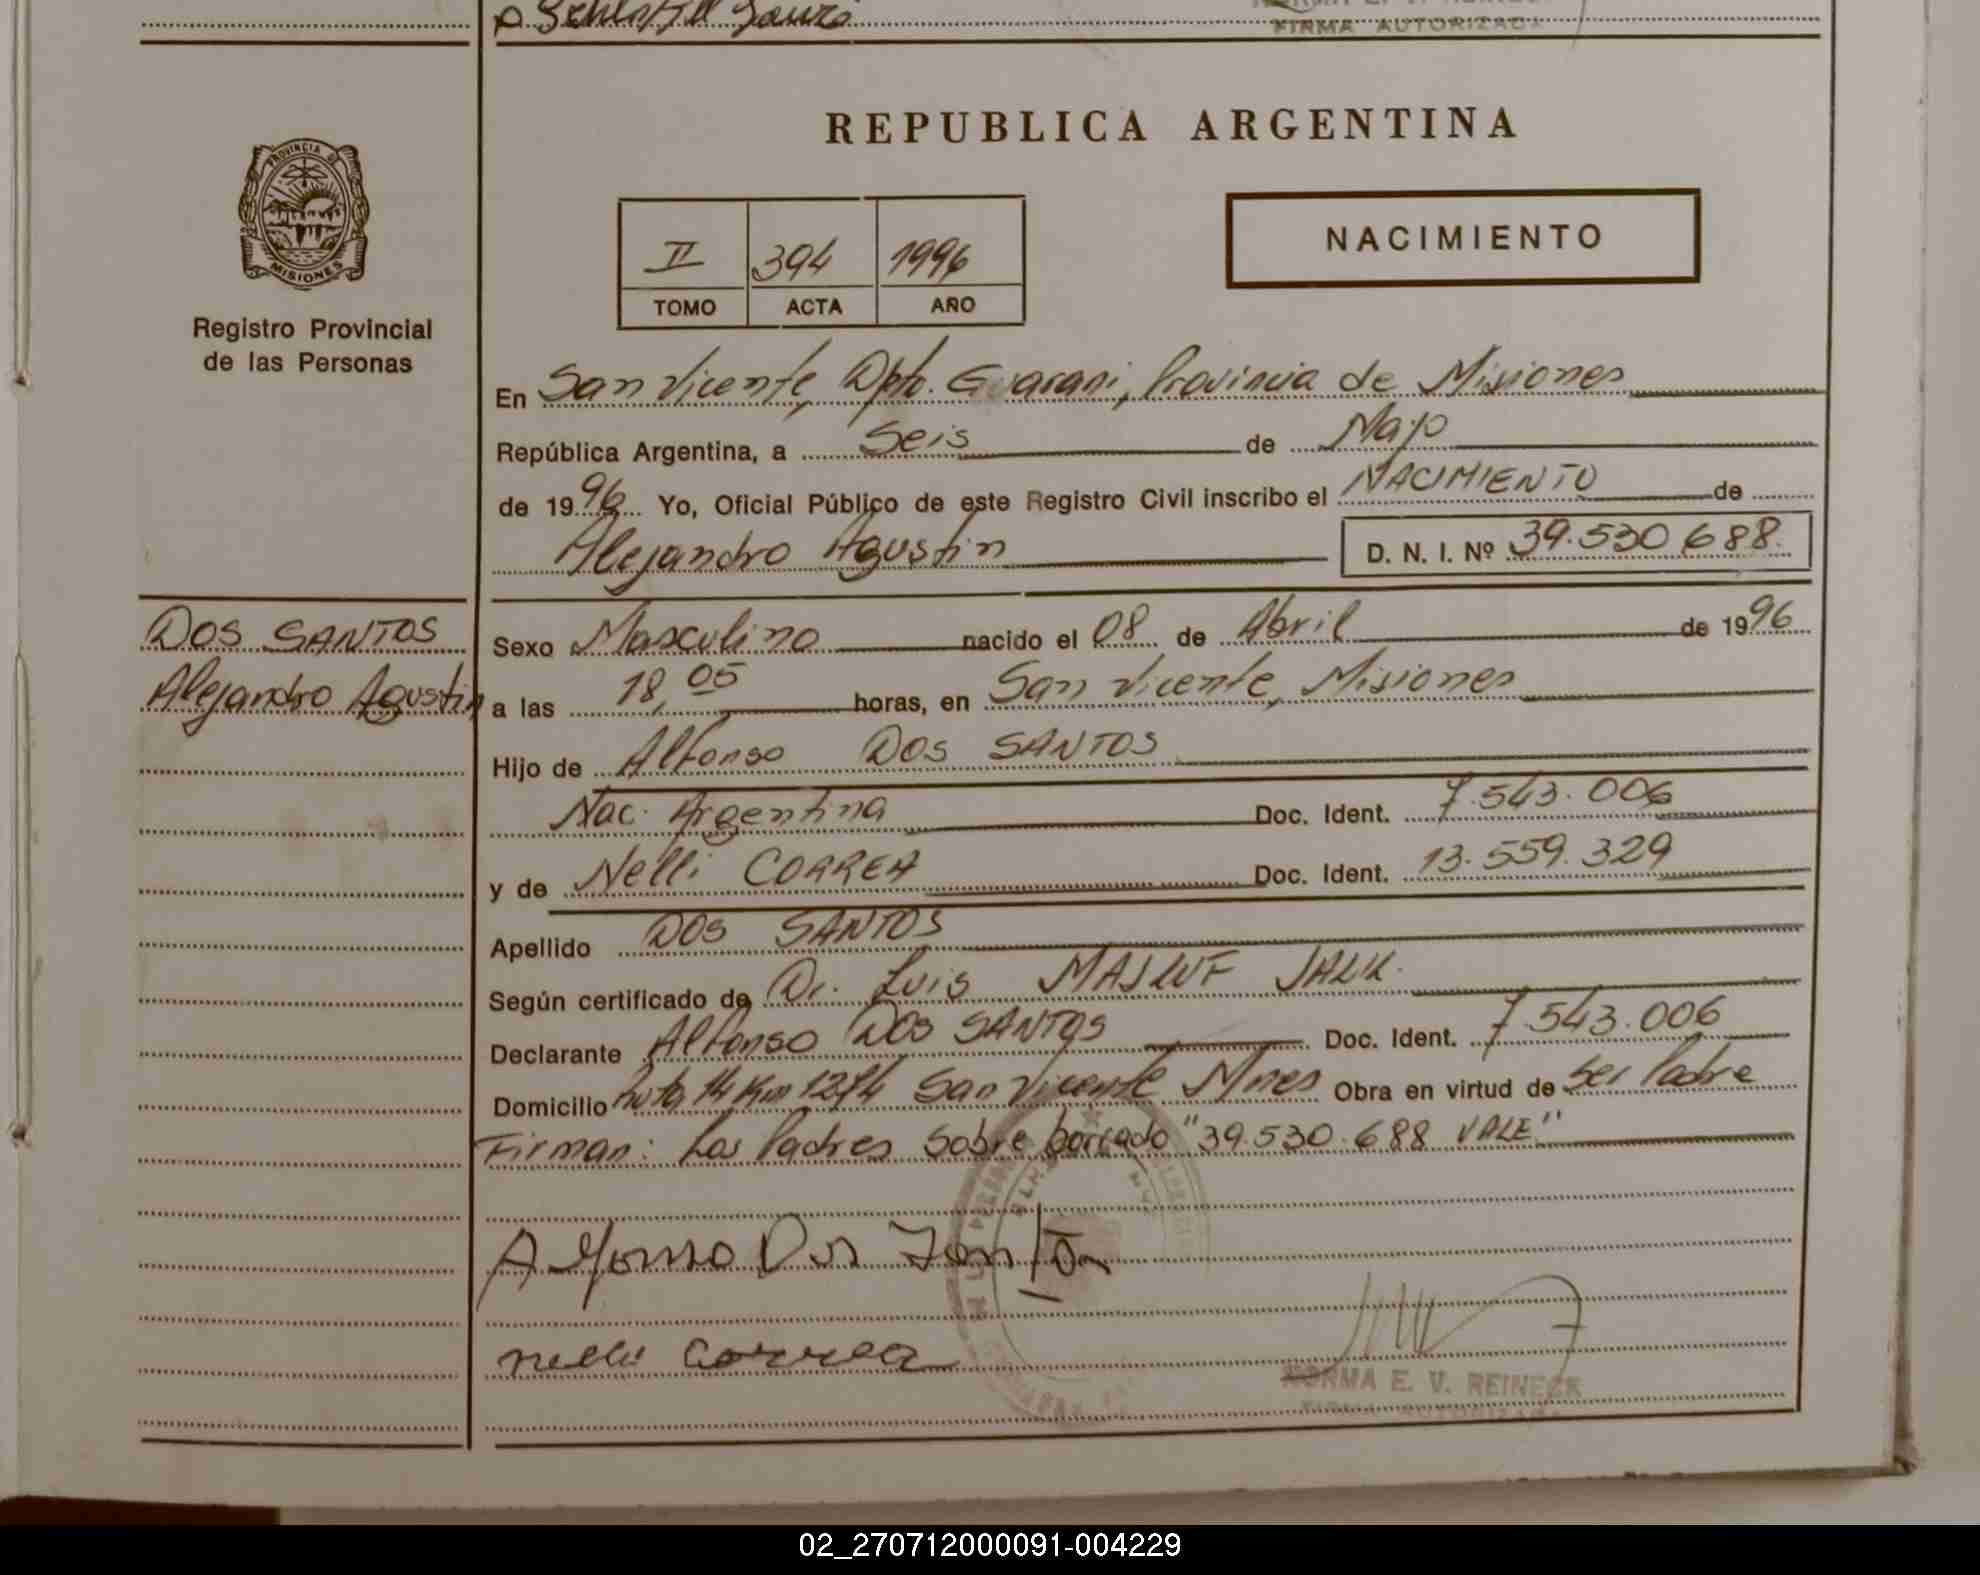 FIRMA AUTORIZADA
REPUBLICA ARGENTINA
PROVINCIA D
MISIONES
Registro Provincial
de las Personas
II 394 1996
TOMO ACTA AÑO
NACIMIENTO
En San Vicente, Dpto. Guarani, Provincia de Misiones
República Argentina, a Seis de Mayo
de 1996 Yo, Oficial Público de este Registro Civil inscribo el NACIMIENTO de
Alejandro Agustin D. N. I. Nº 39.530.688
DOS SANTOS
Alejandro Agustin
Sexo Masculino nacido el 08 de Abril de 1996
a las 18,05 horas, en San Vicente, Misiones
Hijo de Alfonso DOS SANTOS
Nac. Argentina Doc. Ident. 7.543.006
y de Nelli CORREA Doc. Ident. 13.559.329
Apellido DOS SANTOS
Según certificado de Dr. Luis MASLUF JALK
Declarante Alfonso DOS SANTOS Doc. Ident. 7.543.006
Domicilio Ruta 14 Km 1274 San Vicente Mnes Obra en virtud de Ser Padre
Firman: Los Padres Sobre borrado "39.530.688 VALE"
Alfonso Dos Santos
nelli correa
NORMA E. V. REINECK
FIRMA AUTORIZADA
02_270712000091-004229